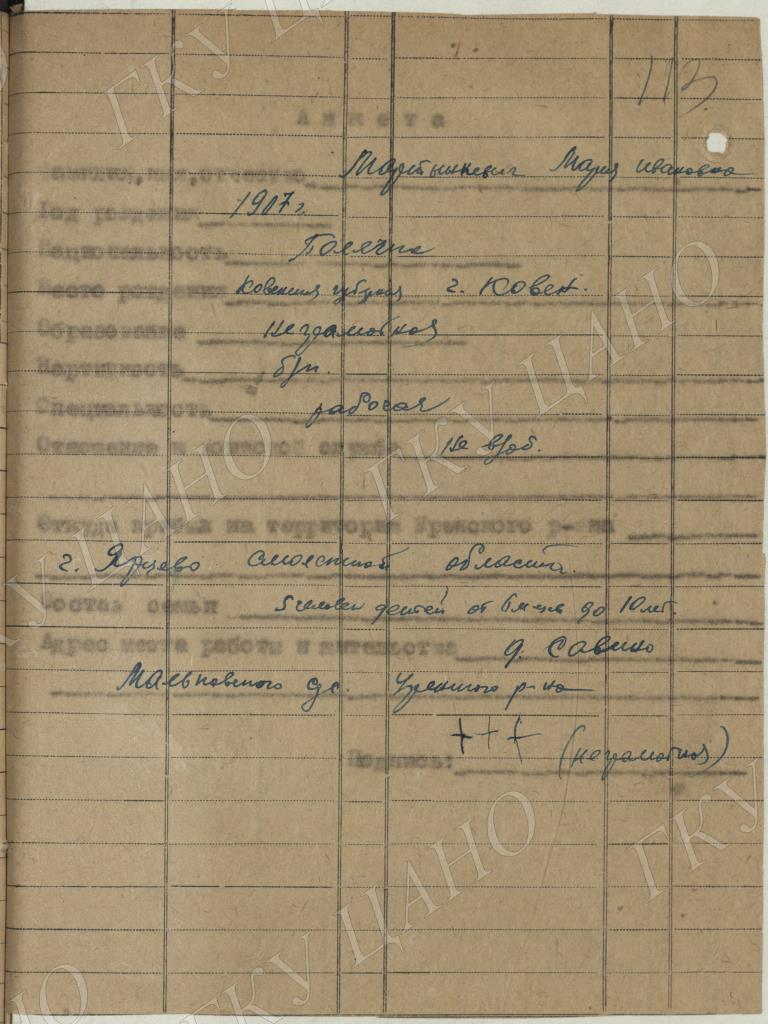 113
Анкета
Фамилия, имя, отчество Мартынкевич Мария Ивановна
Год рождения 1907 г.
Национальность Полячка
Место рождения Ковенская губерния г. Ковен.
Образование Неграмотная
Партийность б/п.
Специальность рабочая
Отношение к воинской службе Не в/об.
Откуда прибыл на территорию Уренского р-на
г. Ярцево Смоленской области.
Состав семьи 5 человек детей от 6 м-цев до 10 лет.
Адрес места работы и жительства д. Савино
с/с. Уренского р-на
+++ (неграмотная)
Подпись:
ГКУ ЦАНО